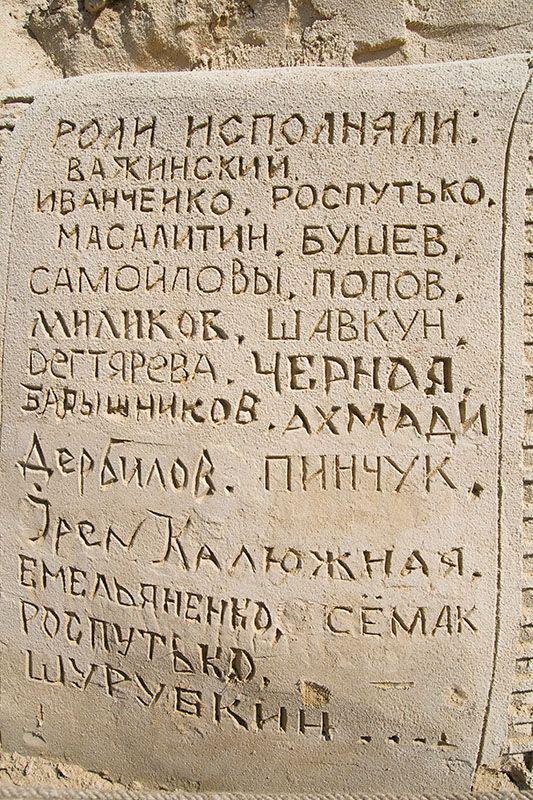 РОЛИ ИСПОЛНЯЛИ:
ВАЖИНСКИЙ.
ИВАНЧЕНКО. РОСПУТЬКО.
МАСАЛИТИН. БУШЕВ,
САМОЙЛОВЫ, ПОПОВ,
МИЛИКОВ, ШАВКУН,
ДЕГТЯРЕВА. ЧЕРНАЯ,
БАРЫШНИКОВ. АХМАДИ
Дербилов. ПИНЧУК,
Ирен КАЛЮЖНАЯ.
ЕМЕЛЬЯНЕНКО, СЁМАК
РОСПУТЬКО,
ШУРУБКИН ....